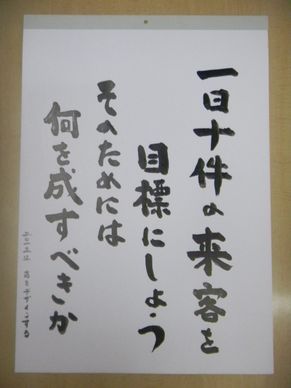 一日十件の来客を
目標にしよう
そのためには
何を成すべきか